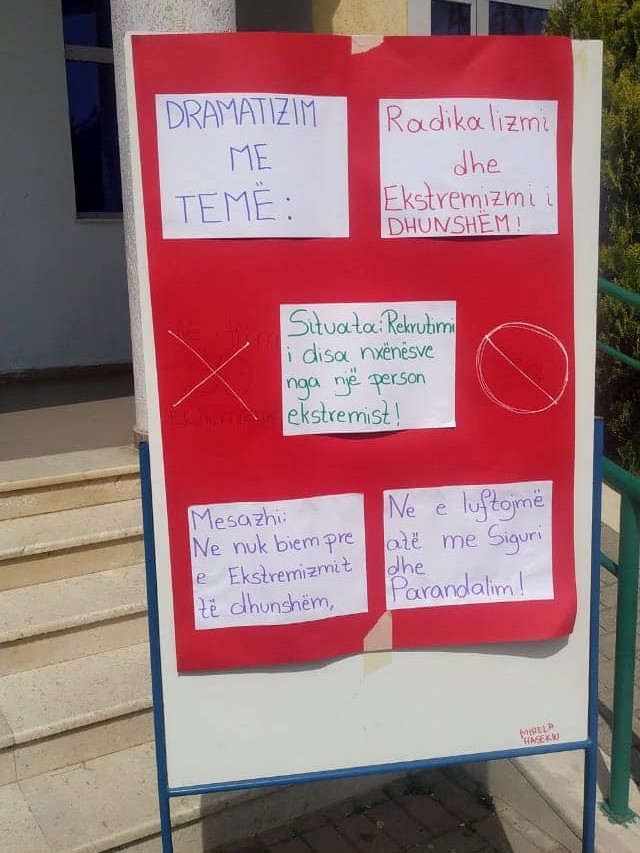 DRAMATIZIM
ME
TEMË:
Radikalizmi
dhe
Ekstremizmi i
DHUNSHËM!
Situata: Rekrutimi
i disa nxënësve
nga një person
ekstremist!
Mesazhi:
Ne nuk biem pre
e Ekstremizmit
të dhunshëm,
Ne e luftojmë
atë me Siguri
dhe
Parandalim!
MIRELA